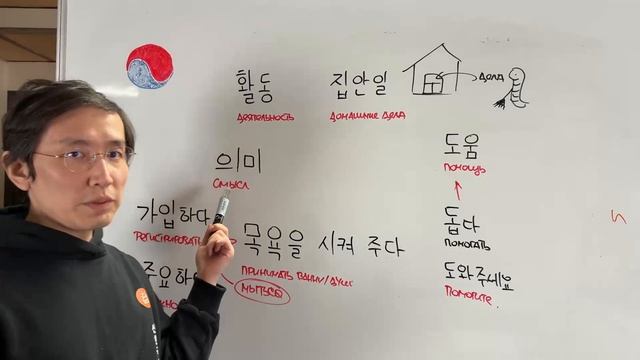 활동
деятельность
집안일
домашние дела
дела
의미
смысл
도움
помощь
가입하다
регистрировать
목욕을 시켜 주다
принимать ванну/душ
돕다
помогать
주요하
도와주세요
помогите.